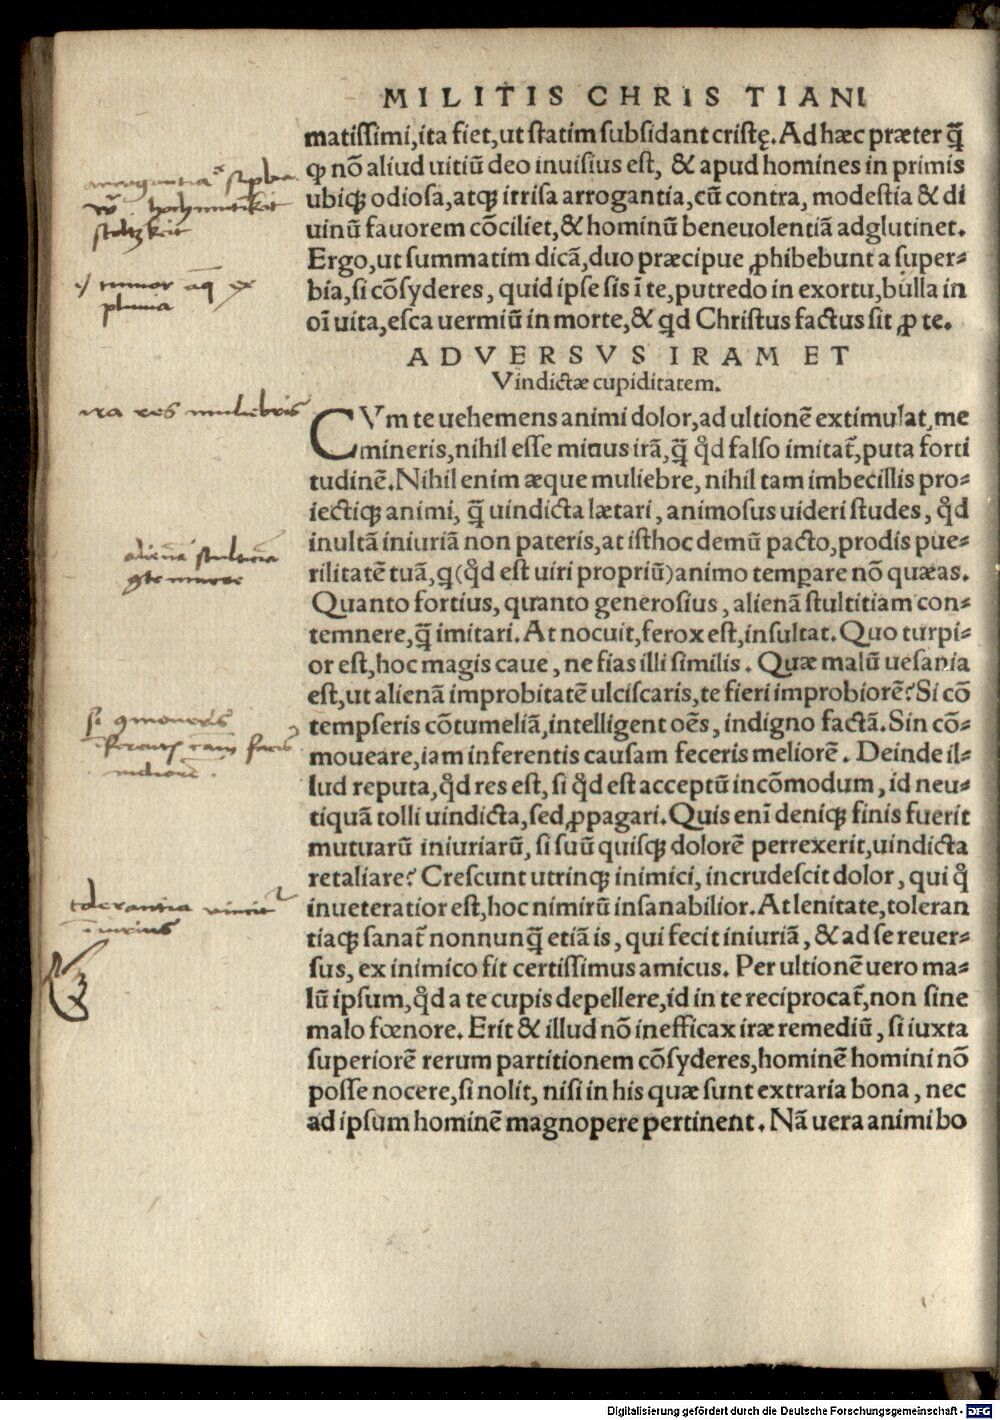 MILITIS CHRISTIANI
matissimi,ita fiet,ut statim subsidant cristę.Ad hæc præter q̄
ꝙ nō aliud uitiū deo inuisius est, & apud homines in primis
ubiqꝫ odiosa,atqꝫ irrisa arrogantia,cū contra, modestia & di
uinū fauorem cōciliet,& hominū beneuolentiā adglutinet.
Ergo,ut summatim dicā,duo præcipue ꝓhibebunt a super-
bia,si cōsyderes, quid ipse sis ī te,putredo in exortu,bulla in
oī uita,esca uermiū in morte,& qd Christus factus sit ꝓ te.
ADVERSVS IRAM ET
Vindictæ cupiditatem.
CVm te uehemens animi dolor,ad ultionē extimulat,me
mineris,nihil esse minus irā,q̄ qd̉ falso imitat᷑,puta forti
tudinē.Nihil enim æque muliebre, nihil tam imbecillis pro-
iectiqꝫ animi, q̄ uindicta lætari, animosus uideri studes, qd̉
inultā iniuriā non pateris,at isthoc demū pacto,prodis pue-
rilitatē tuā,q(qd̉ est uiri propriū)animo temꝑare nō quæas.
Quanto fortius, quanto generosius, alienā stultitiam con-
temnere,q̄ imitari.At nocuit,ferox est,insultat.Quo turpi-
or est,hoc magis caue, ne fias illi similis. Quæ malū uesania
est,ut alienā improbitatē ulciscaris,te fieri improbiorē?Si cō
tempseris cōtumeliā,intelligent oēs, indigno factā.Sin cō-
moueare,iam inferentis causam feceris meliorē. Deinde il-
lud reputa,qd̉ res est, si qd̉ est acceptū incōmodum, id neu-
tiquā tolli uindicta,sed ꝓpagari.Quis enī deniqꝫ finis fuerit
mutuarū iniuriarū, si suū quisqꝫ dolorē perrexerit,uindicta
retaliare? Crescunt utrinqꝫ inimici, incrudescit dolor, qui q̉
inueteratior est,hoc nimirū insanabilior.At lenitate,toleran
tiaqꝫ sanat᷑ nonnunq̄ etiā is, qui fecit iniuriā, & ad se reuer-
sus, ex inimico fit certissimus amicus. Per ultionē uero ma-
lū ipsum,qd̉ a te cupis depellere,id in te reciprocat᷑,non sine
malo fœnore. Erit & illud nō inefficax iræ remediū, si iuxta
superiorē rerum partitionem cōsyderes,hominē homini nō
posse nocere,si nolit, nisi in his quæ sunt extraria bona, nec
ad ipsum hominē magnopere pertinent. Nā uera animi bo
arrogantia
hochmutikeit
stoltzkeit
tumor aq̄ ex
pluuia
ira res muliebris
alienā stultitiā
ꝯtemnere
si ꝯmoueris
īferentis cām facis
meliorē.
tolerantia vincit
īimicus
Digitalisierung gefördert durch die Deutsche Forschungsgemeinschaft - DFG